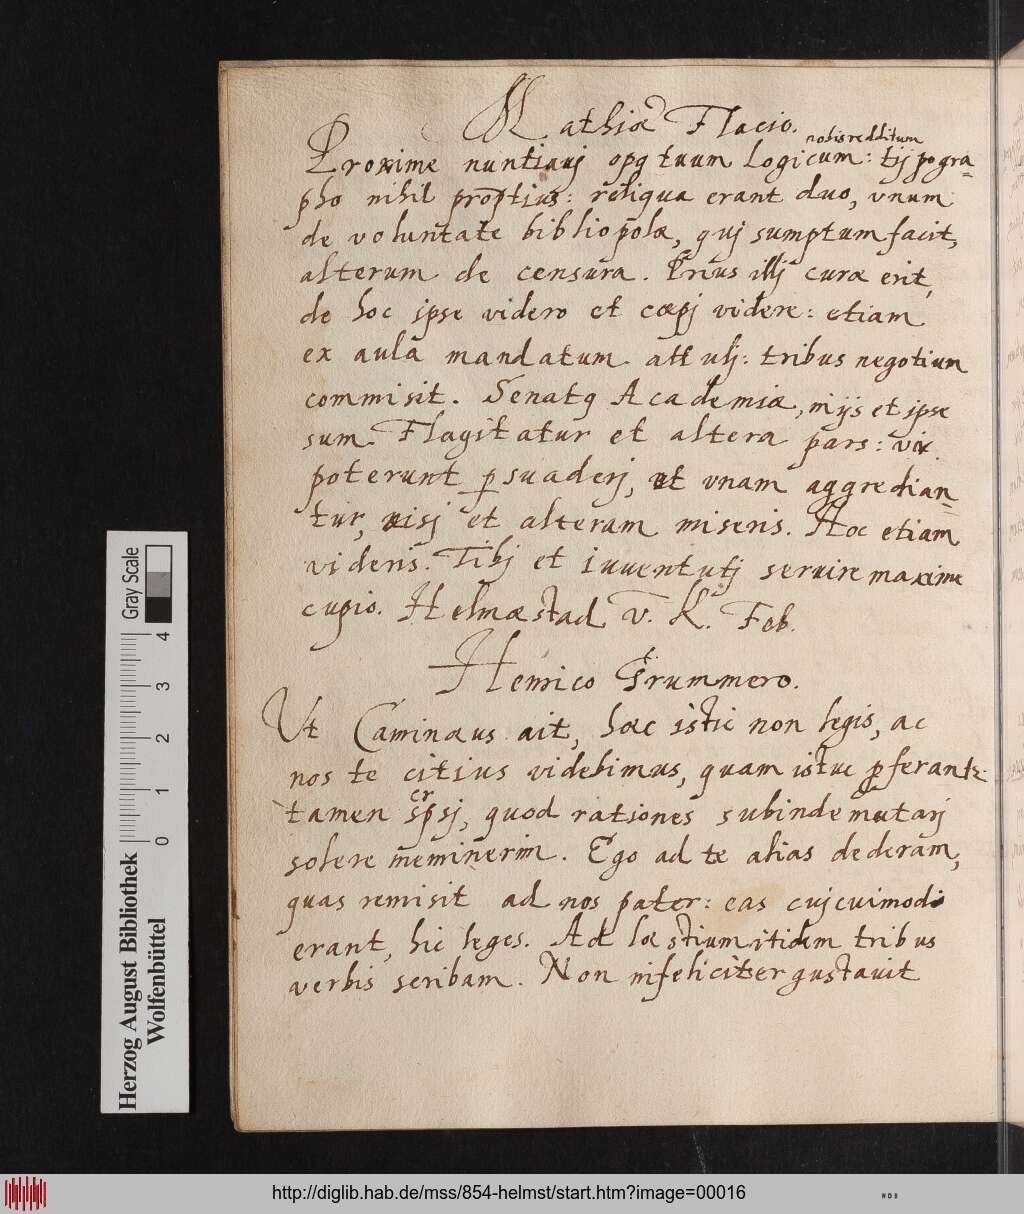 Mathiæ Flacio.
Proxime nuntiauj opq tuum Logicum nobis redditum: tijpogra=
pho nihil proptius: reliqua erant duo, vnum
de voluntate bibliopolæ, quj sumptum facit,
alterum de censura. Prius illj curæ erit,
de hoc ipse videro et cœpj videre: etiam
ex aula mandatum attulj: tribus negotium
commisit. Senatq Academiæ, mijs et ipse
sum. Flagitatur et altera pars: vix
poterunt psuaderj, ut vnam aggredian=
tur, nisj et alteram miseris. Hoc etiam
videris. Tibj et iuuentutj seruire maxime
cupio. Helmæstad V. K. Feb.
Henrico Grummero.
Ut Caminæus ait, hæc istic non legis, ac
nos te citius videbimus, quam istuc pferantr:
tamen scrpsj, quod rationes subinde mutarj
solere meminerim. Ego ad te alias dederam,
quas remisit ad nos pater: eas cujcuimodi
erant, hic leges. Ad Lœstium itidem tribus
verbis scribam. Non infeliciter gustauit
Herzog August Bibliothek
Wolfenbüttel
0 1 2 3 4
Gray Scale
http://diglib.hab.de/mss/854-helmst/start.htm?image=00016